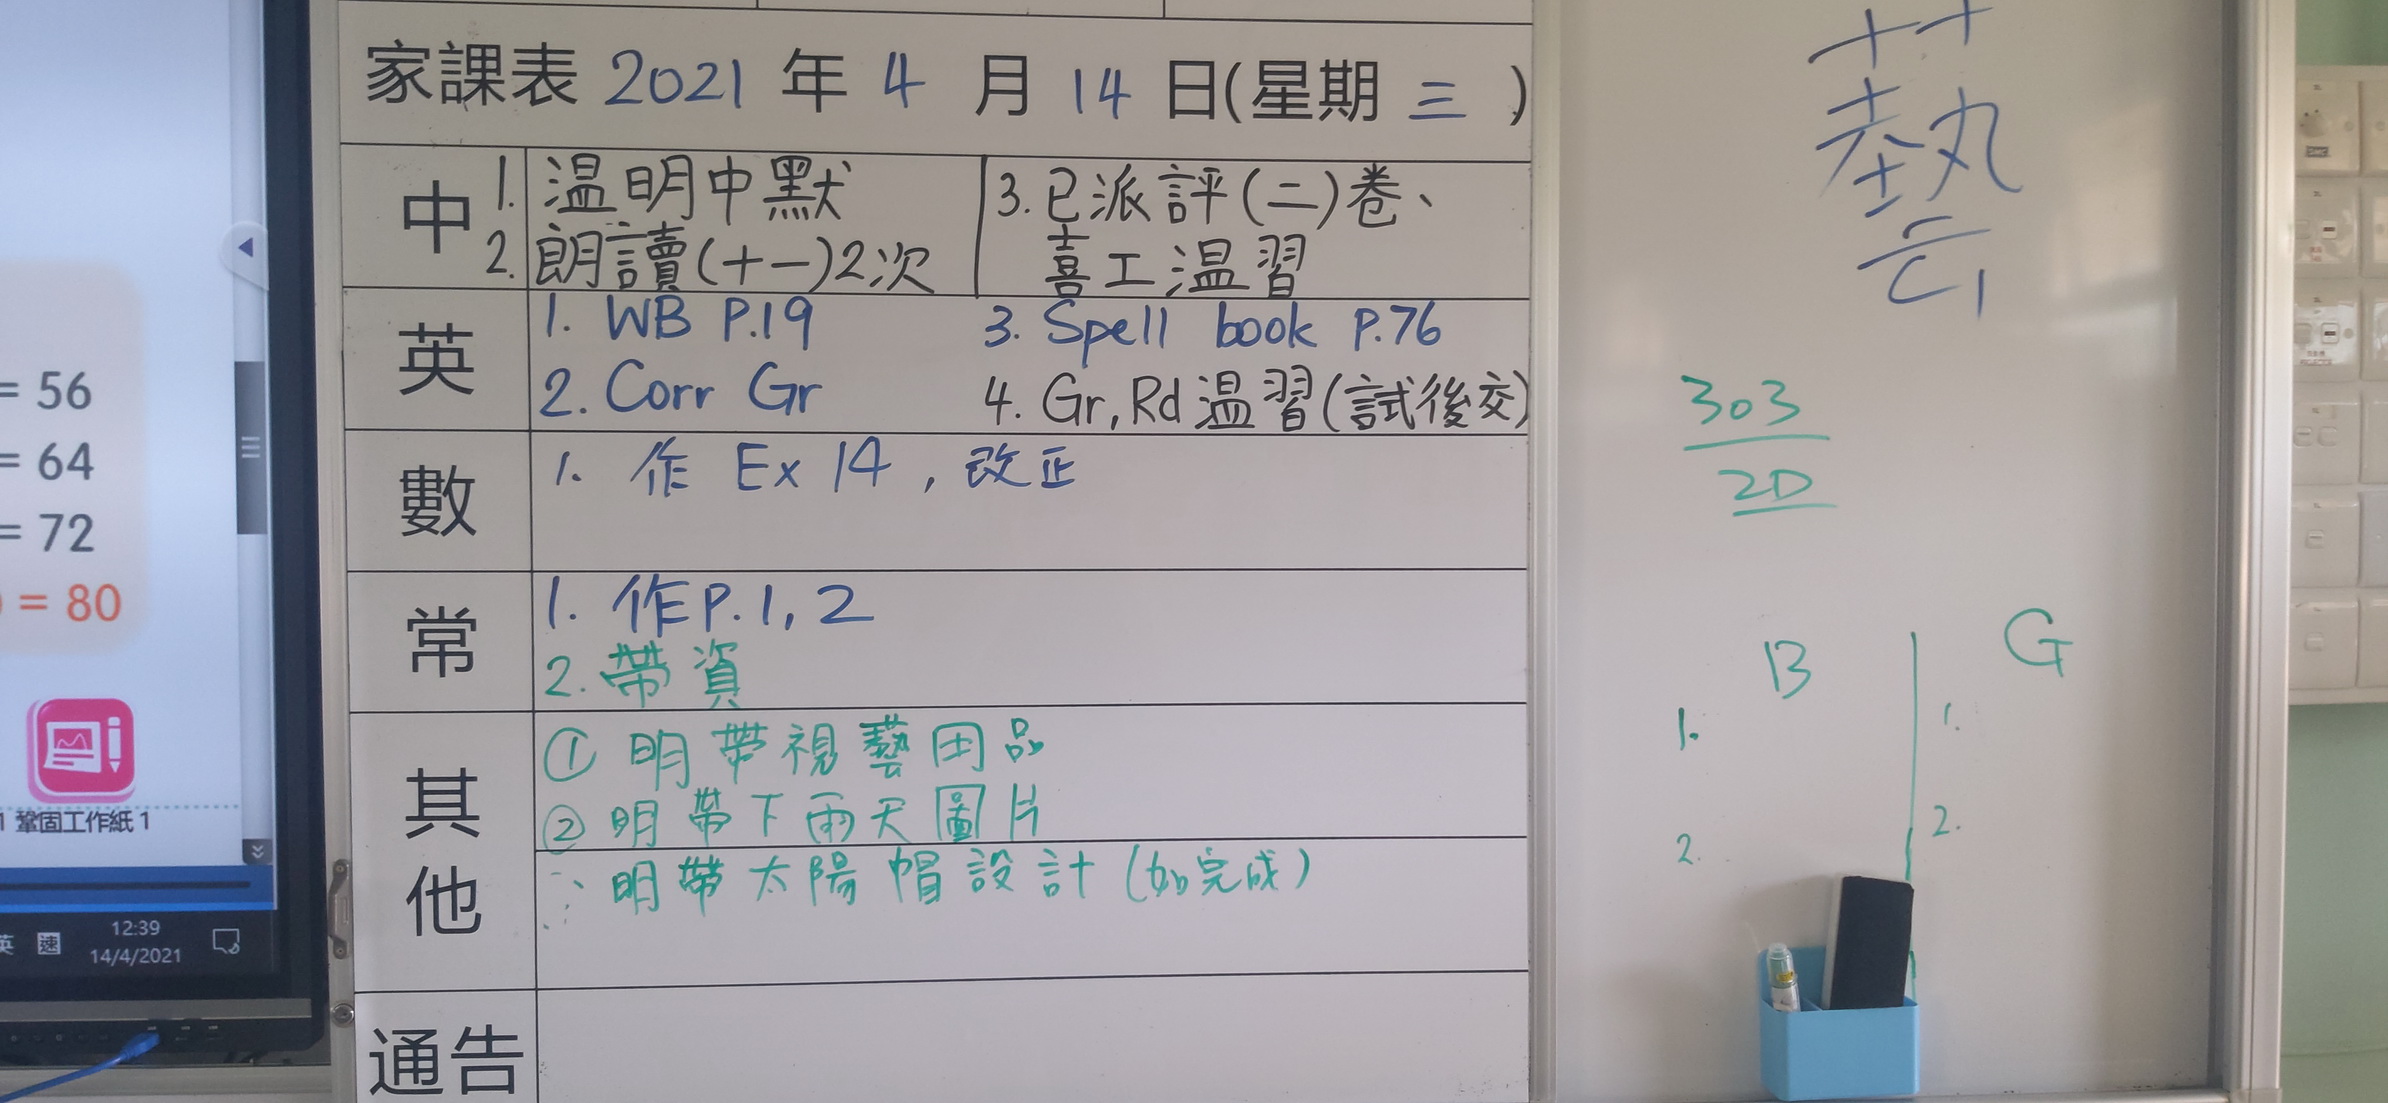 家課表 2021 年 4 月 14 日(星期 三 )
中
1. 温明中默
2. 朗讀(十一)2次
3. 已派評(二)卷、
喜工温習
英
1. WB P.19
2. Corr Gr
3. Spell book P.76
4. Gr, Rd 温習(試後交)
數
1. 作 Ex 14, 改正
常
1. 作P.1, 2
2. 帶資
其他
① 明帶視藝用品
② 明帶下雨天圖片
明帶太陽帽設計(如完成)
通告
= 56
= 64
= 72
= 80
1 鞏固工作紙 1
英 速
12:39
14/4/2021
藝
303
2D
B G
1. 1.
2. 2.